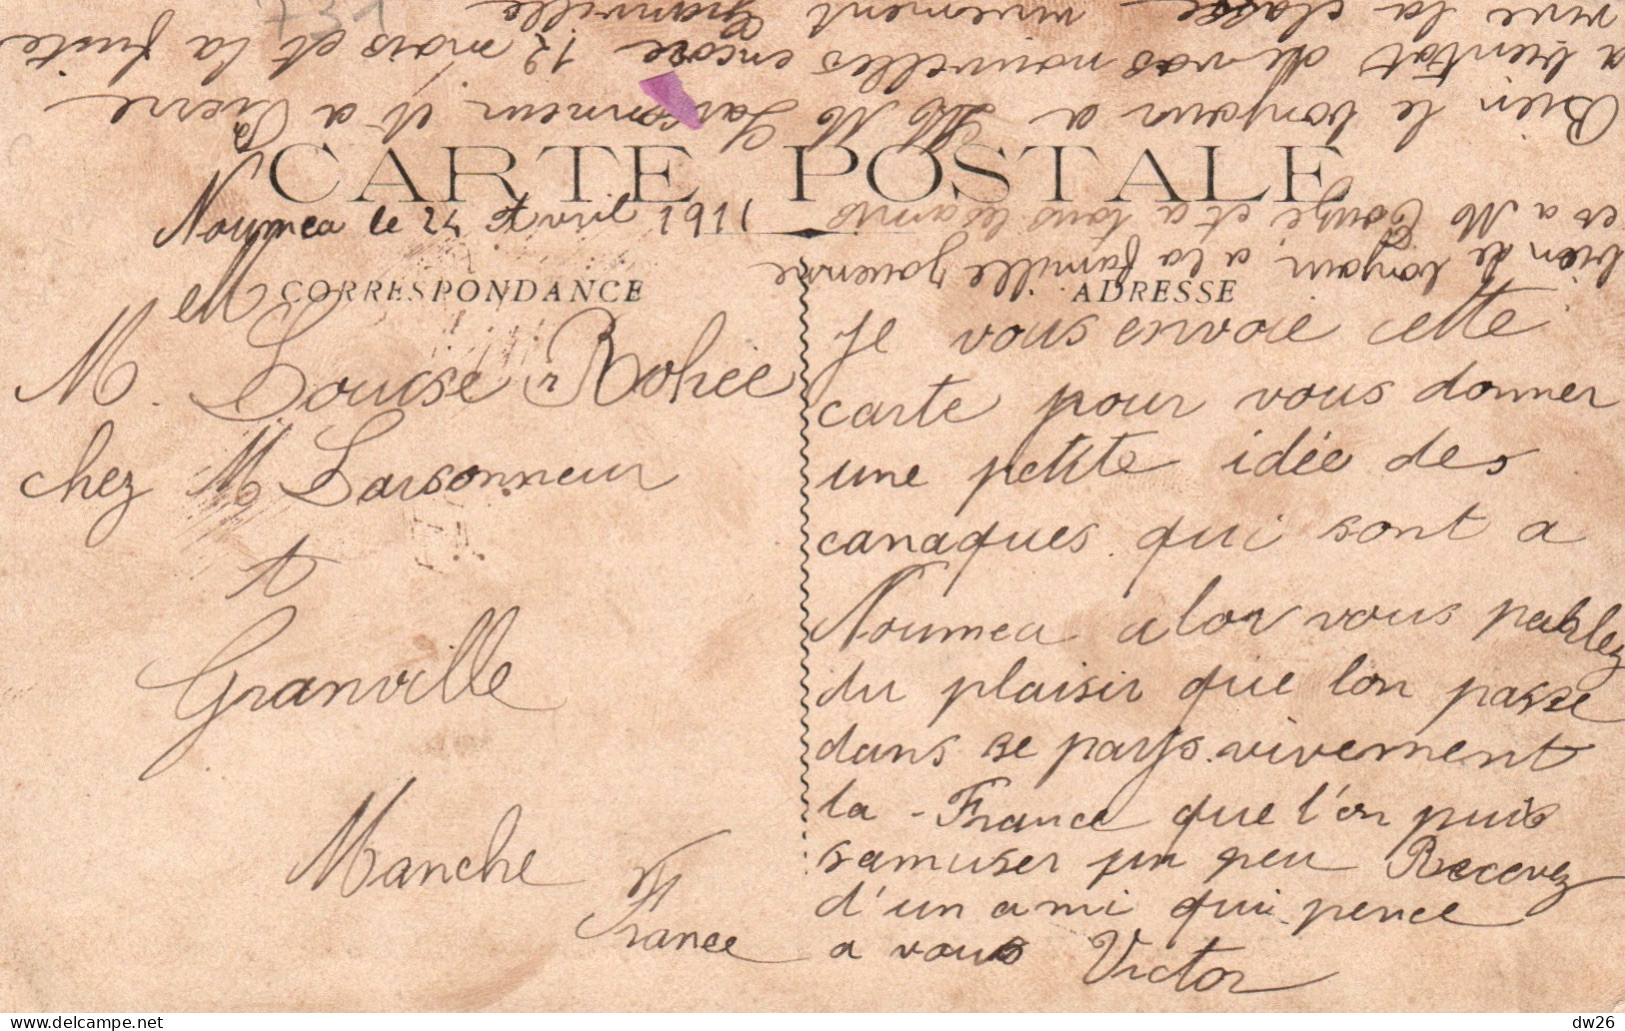 731
CARTE POSTALE
Noumea le 24 Avril 1911
CORRESPONDANCE
ADRESSE
Mlle
M. Louise Rohée
chez M Larsonneur
A
Granville
Manche
France
Je vous envoie cette
carte pour vous donner
une petite idée des
canaques qui sont a
Noumea alor vous parlez
du plaisir que lon passe
dans se pays vivement
la France que l'on puis
samuser un peu Recevez
d'un ami qui pence
a vous Victor
bien le bonjour a la famille
es a M et a tous les amis
Bien le bonjour a M M Larsonneur et a Pierre
a bientot de vos nouvelles encore 12 mois et la fuite
vive la classe vivement Granville
dw26